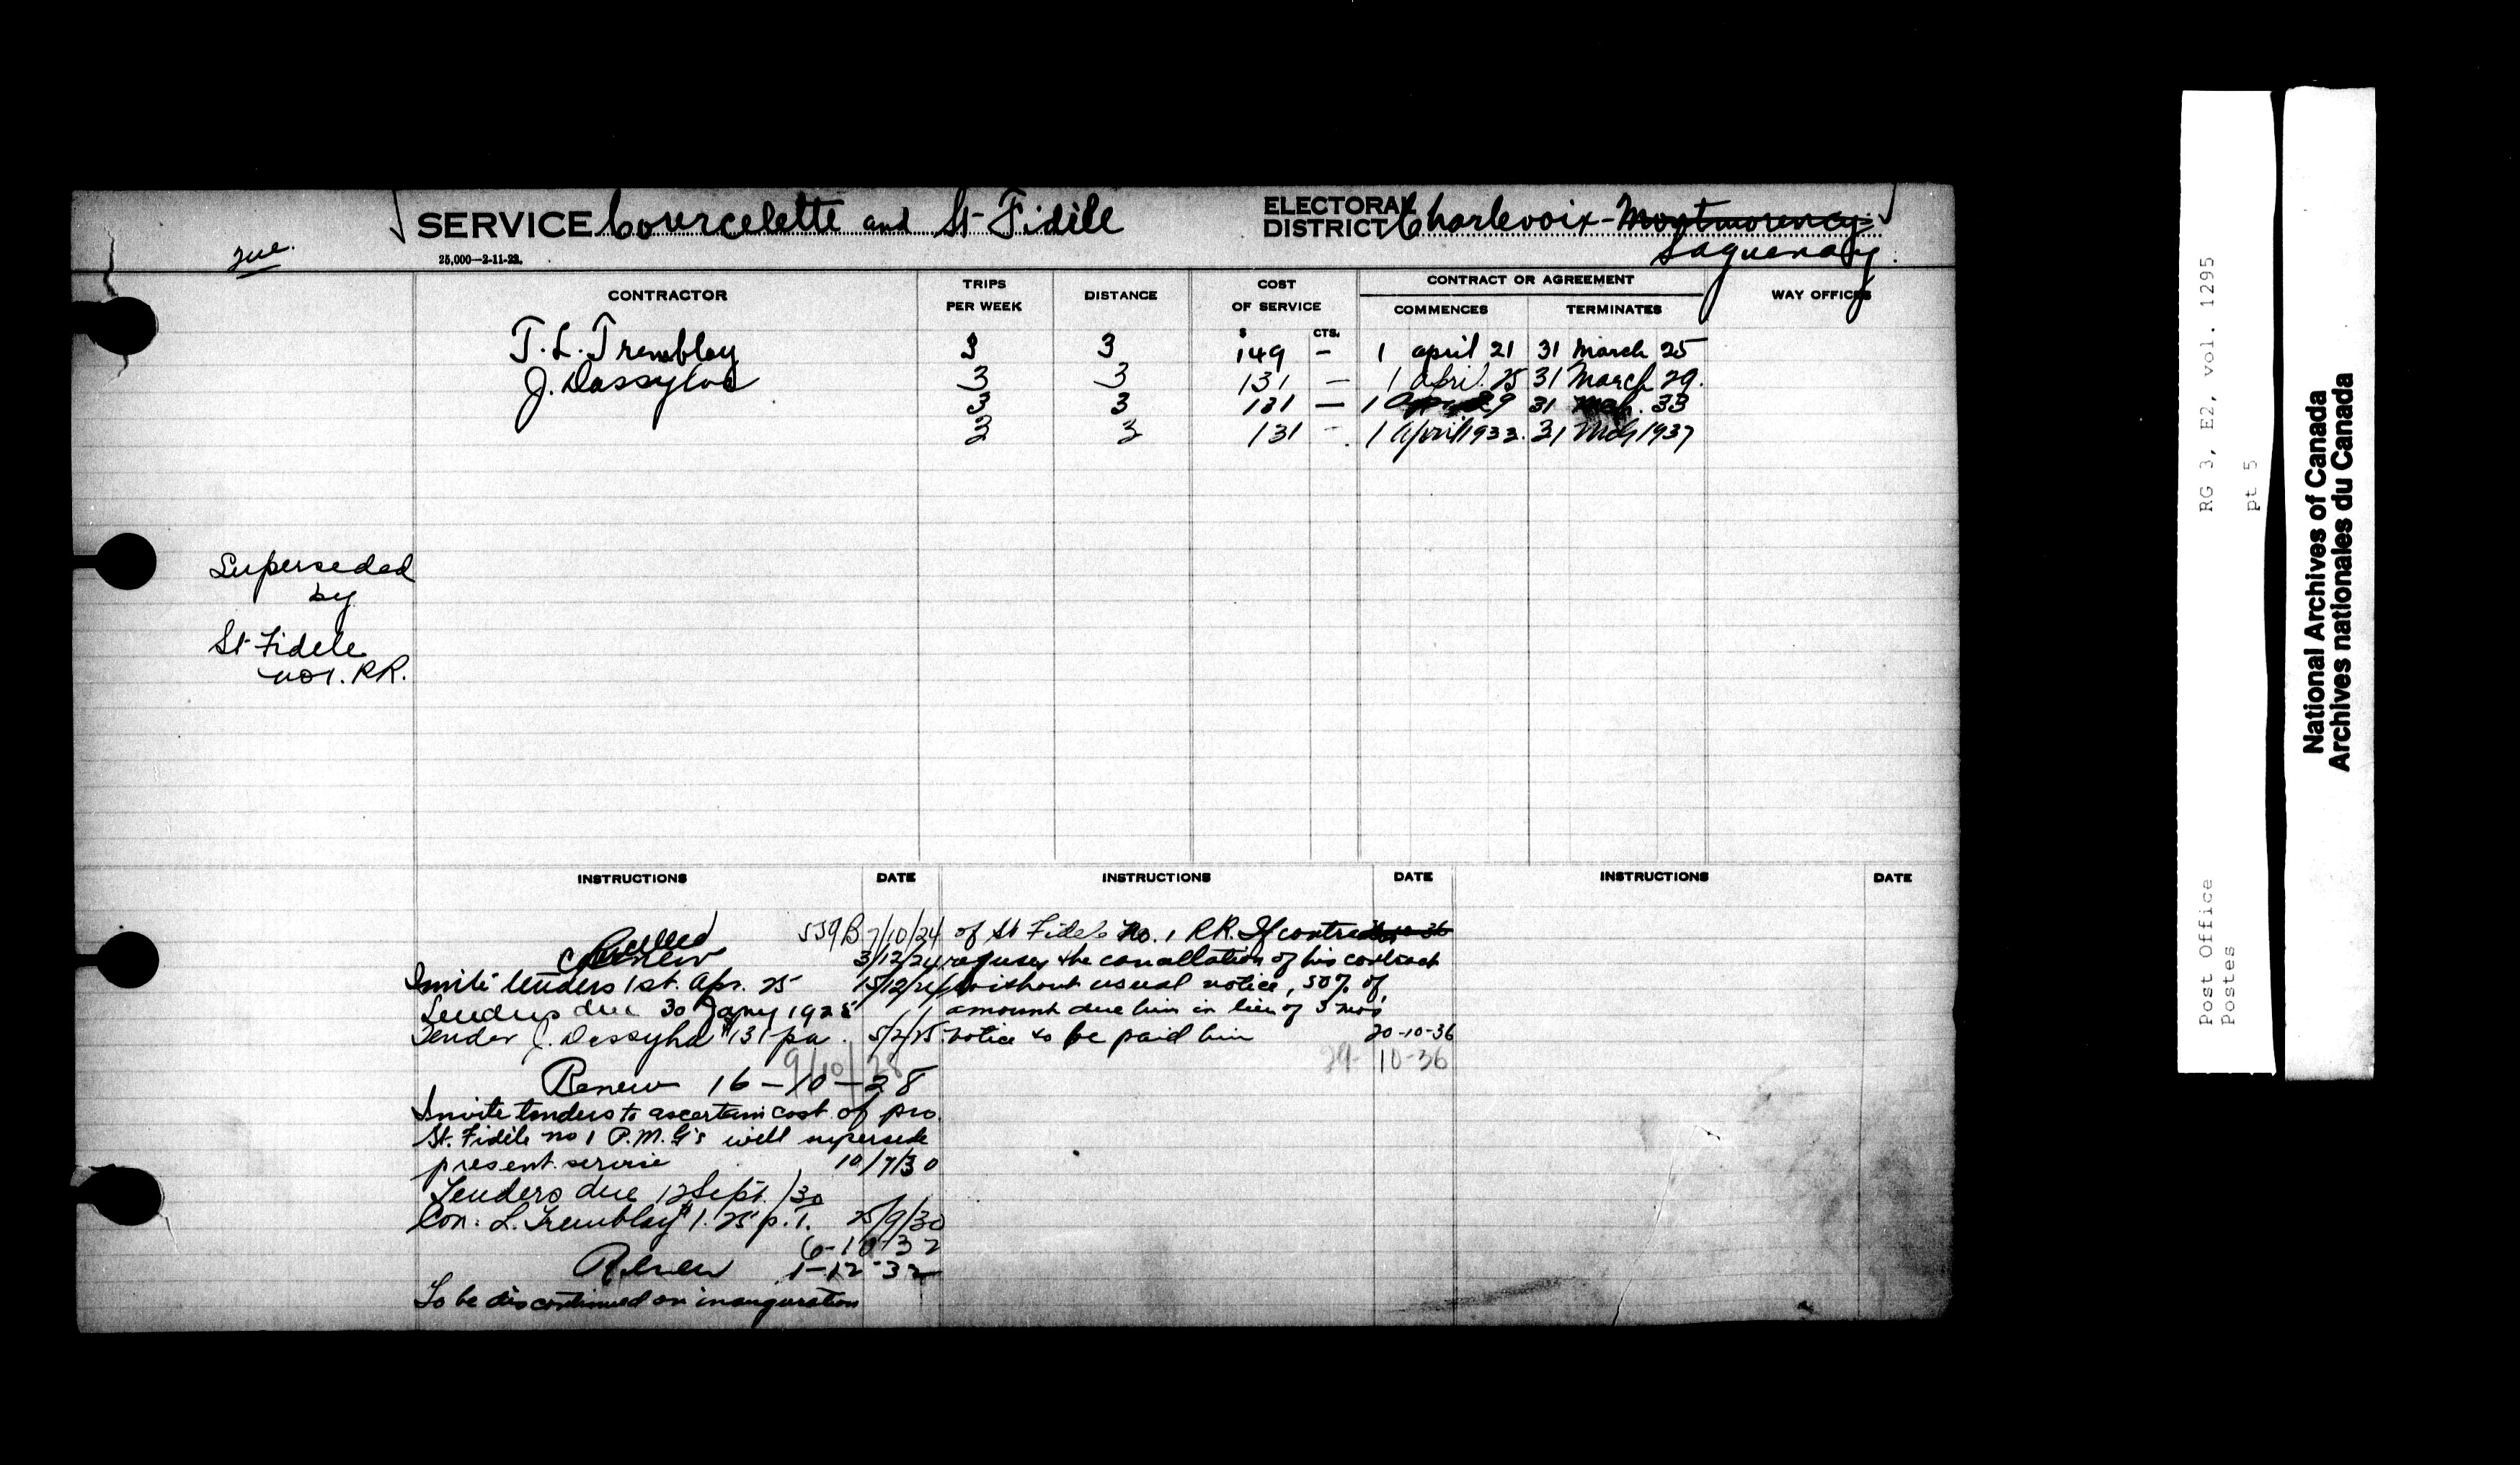 SERVICE Courcelette and St Fidèle
ELECTORAL DISTRICT Charlevoix - Montmorency
Saguenay
Que
25,000—2-11-22.
CONTRACTOR
TRIPS PER WEEK
DISTANCE
COST OF SERVICE
CONTRACT OR AGREEMENT
COMMENCES
TERMINATES
WAY OFFICES
$ CTS.
T. L. Tremblay 3 3 149 - 1 april 21 31 march 25
J. Dassylva 3 3 131 — 1 April 25 31 March 29.
3 3 131 — 1 29 31 Mch. 33
3 3 131 - 1 April 1933. 31 Mch 1937
Superseded
by
St Fidele
no 1. RR.
INSTRUCTIONS DATE INSTRUCTIONS DATE INSTRUCTIONS DATE
559B 7/10/24
Renew 3/12/24
Invite tenders 1st. Apr. 25 15/12/24
Tenders due 30 Jany 1925
Tender J. Dassylva $131 pa. 5/2/25
9/10/28
Renew 16-10-28
Invite tenders to ascertain cost of pro.
St. Fidèle no 1 P.M.G's will supersede
present service 10/7/30
Tenders due 12 Sept. /30
Con: L. Tremblay $1.25 p. T. 25/9/30
6-10-32
Renew 1-12-32
To be discontinued on inauguration
of St Fidele No. 1 RR. If
refuses the cancellation of his contract
without usual notice, 50% of
amount due him in lieu of 3 mos'
notice to be paid him 20-10-36
29-10-36
RG 3, E2, vol. 1295
pt 5
Post Office
Postes
National Archives of Canada
Archives nationales du Canada